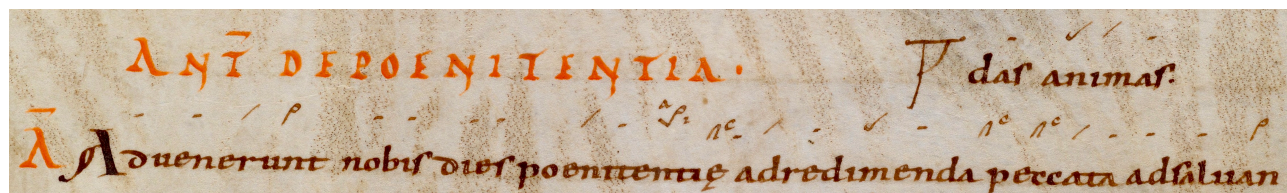 ANT̄ DE POENITENTIA· das animas.
Ā Aduenerunt nobis dies poenitentię adredimenda peccata adsaluan